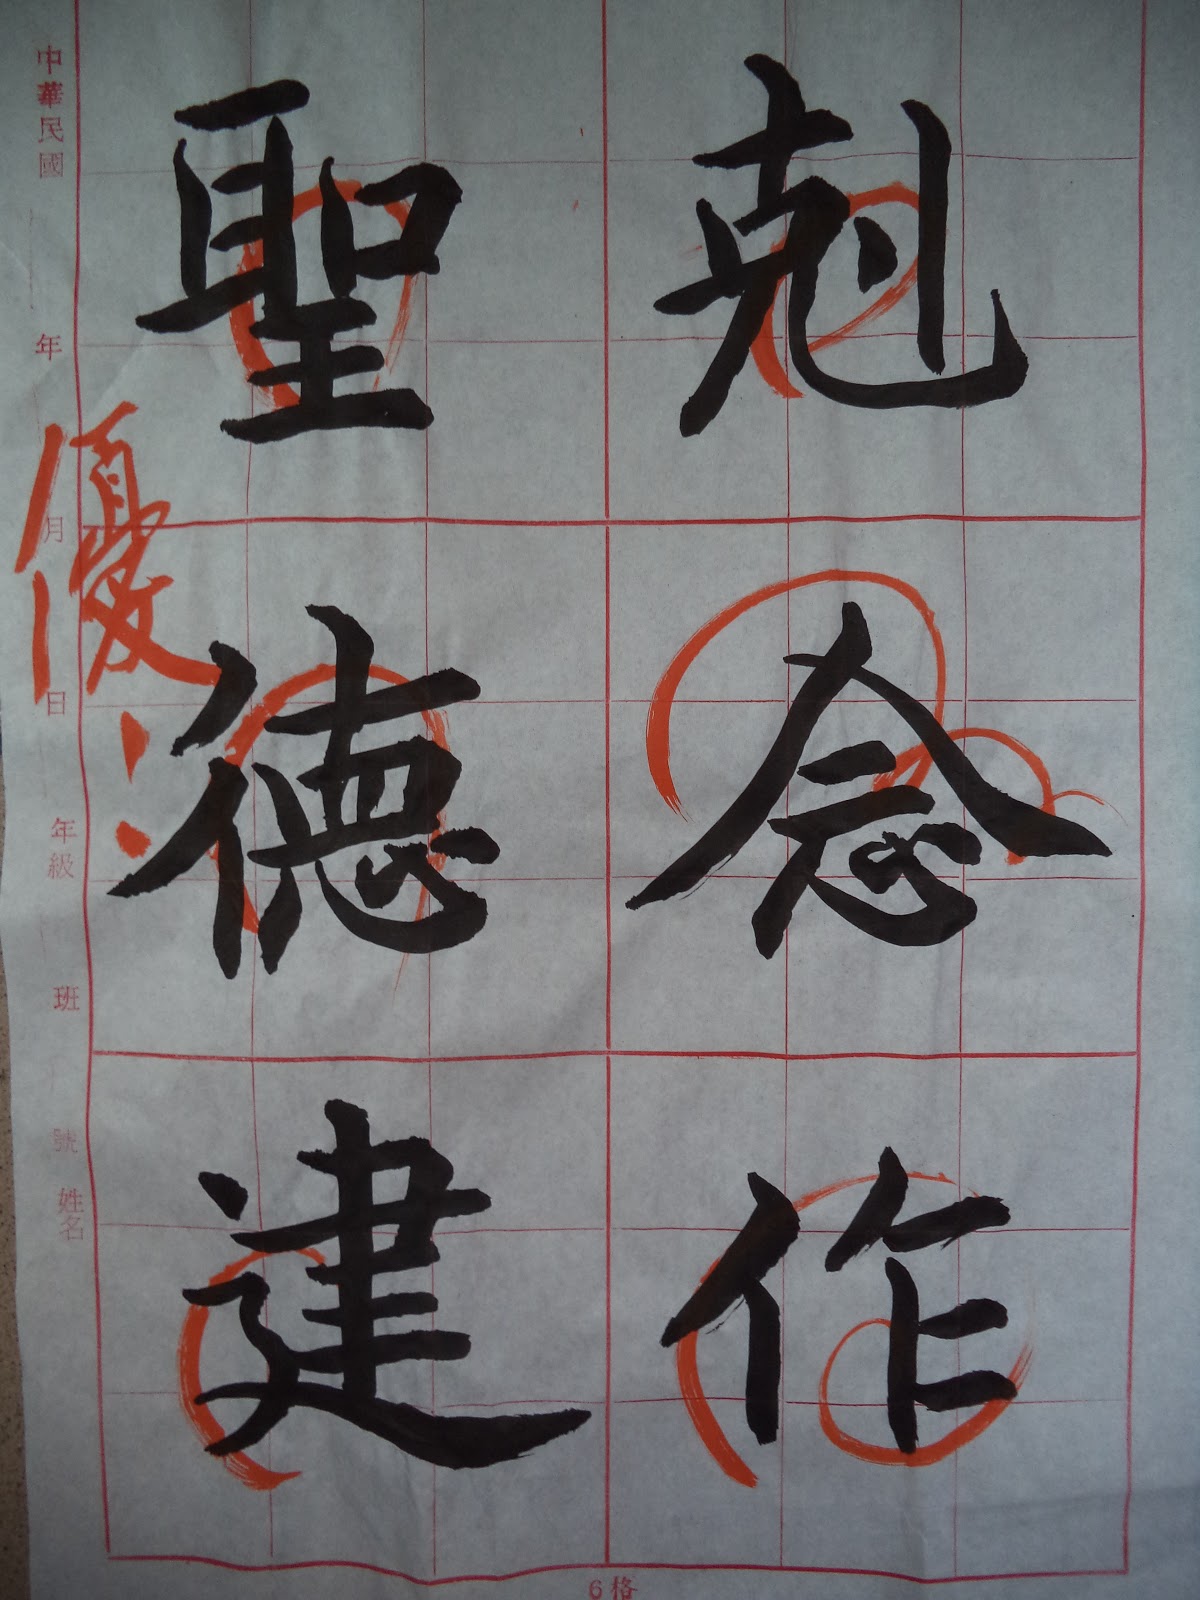 剋念作
聖德建
優
中華民國 年 月 日 年級 班 號 姓名
6格